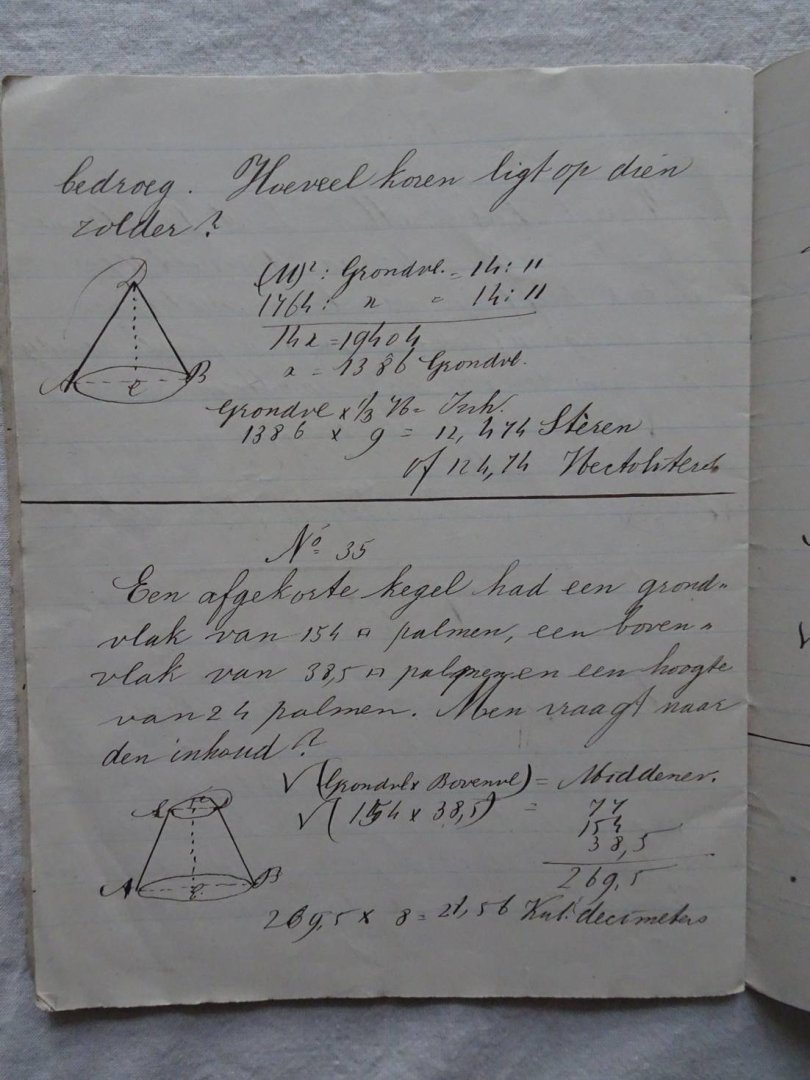 bedroeg. Hoeveel koren ligt op dien
zolder?
D
A
B
C
(M)² : Grondvl. = 14 : 11
1764 : x = 14 : 11
14x = 19404
x = 1386 Grondvl.
Grondvl x 1/3 H = Inh.
1386 x 9 = 12,474 Stèren
of 124,74 Hectoliters
No 35
Een afgekorte kegel had een grond„
vlak van 154 □ palmen, een boven„
vlak van 38,5 □ palmen en een hoogte
van 24 palmen. Men vraagt naar
den inhoud?
√(Grondvl x Bovenvl) = Middenev.
√(154 x 38,5) = 77
154
38,5
269,5
A
B
269,5 x 8 = 21,56 Kub. decimeters